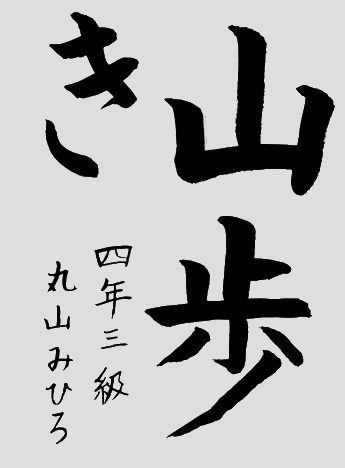 山歩
き
四年三級
丸山みひろ